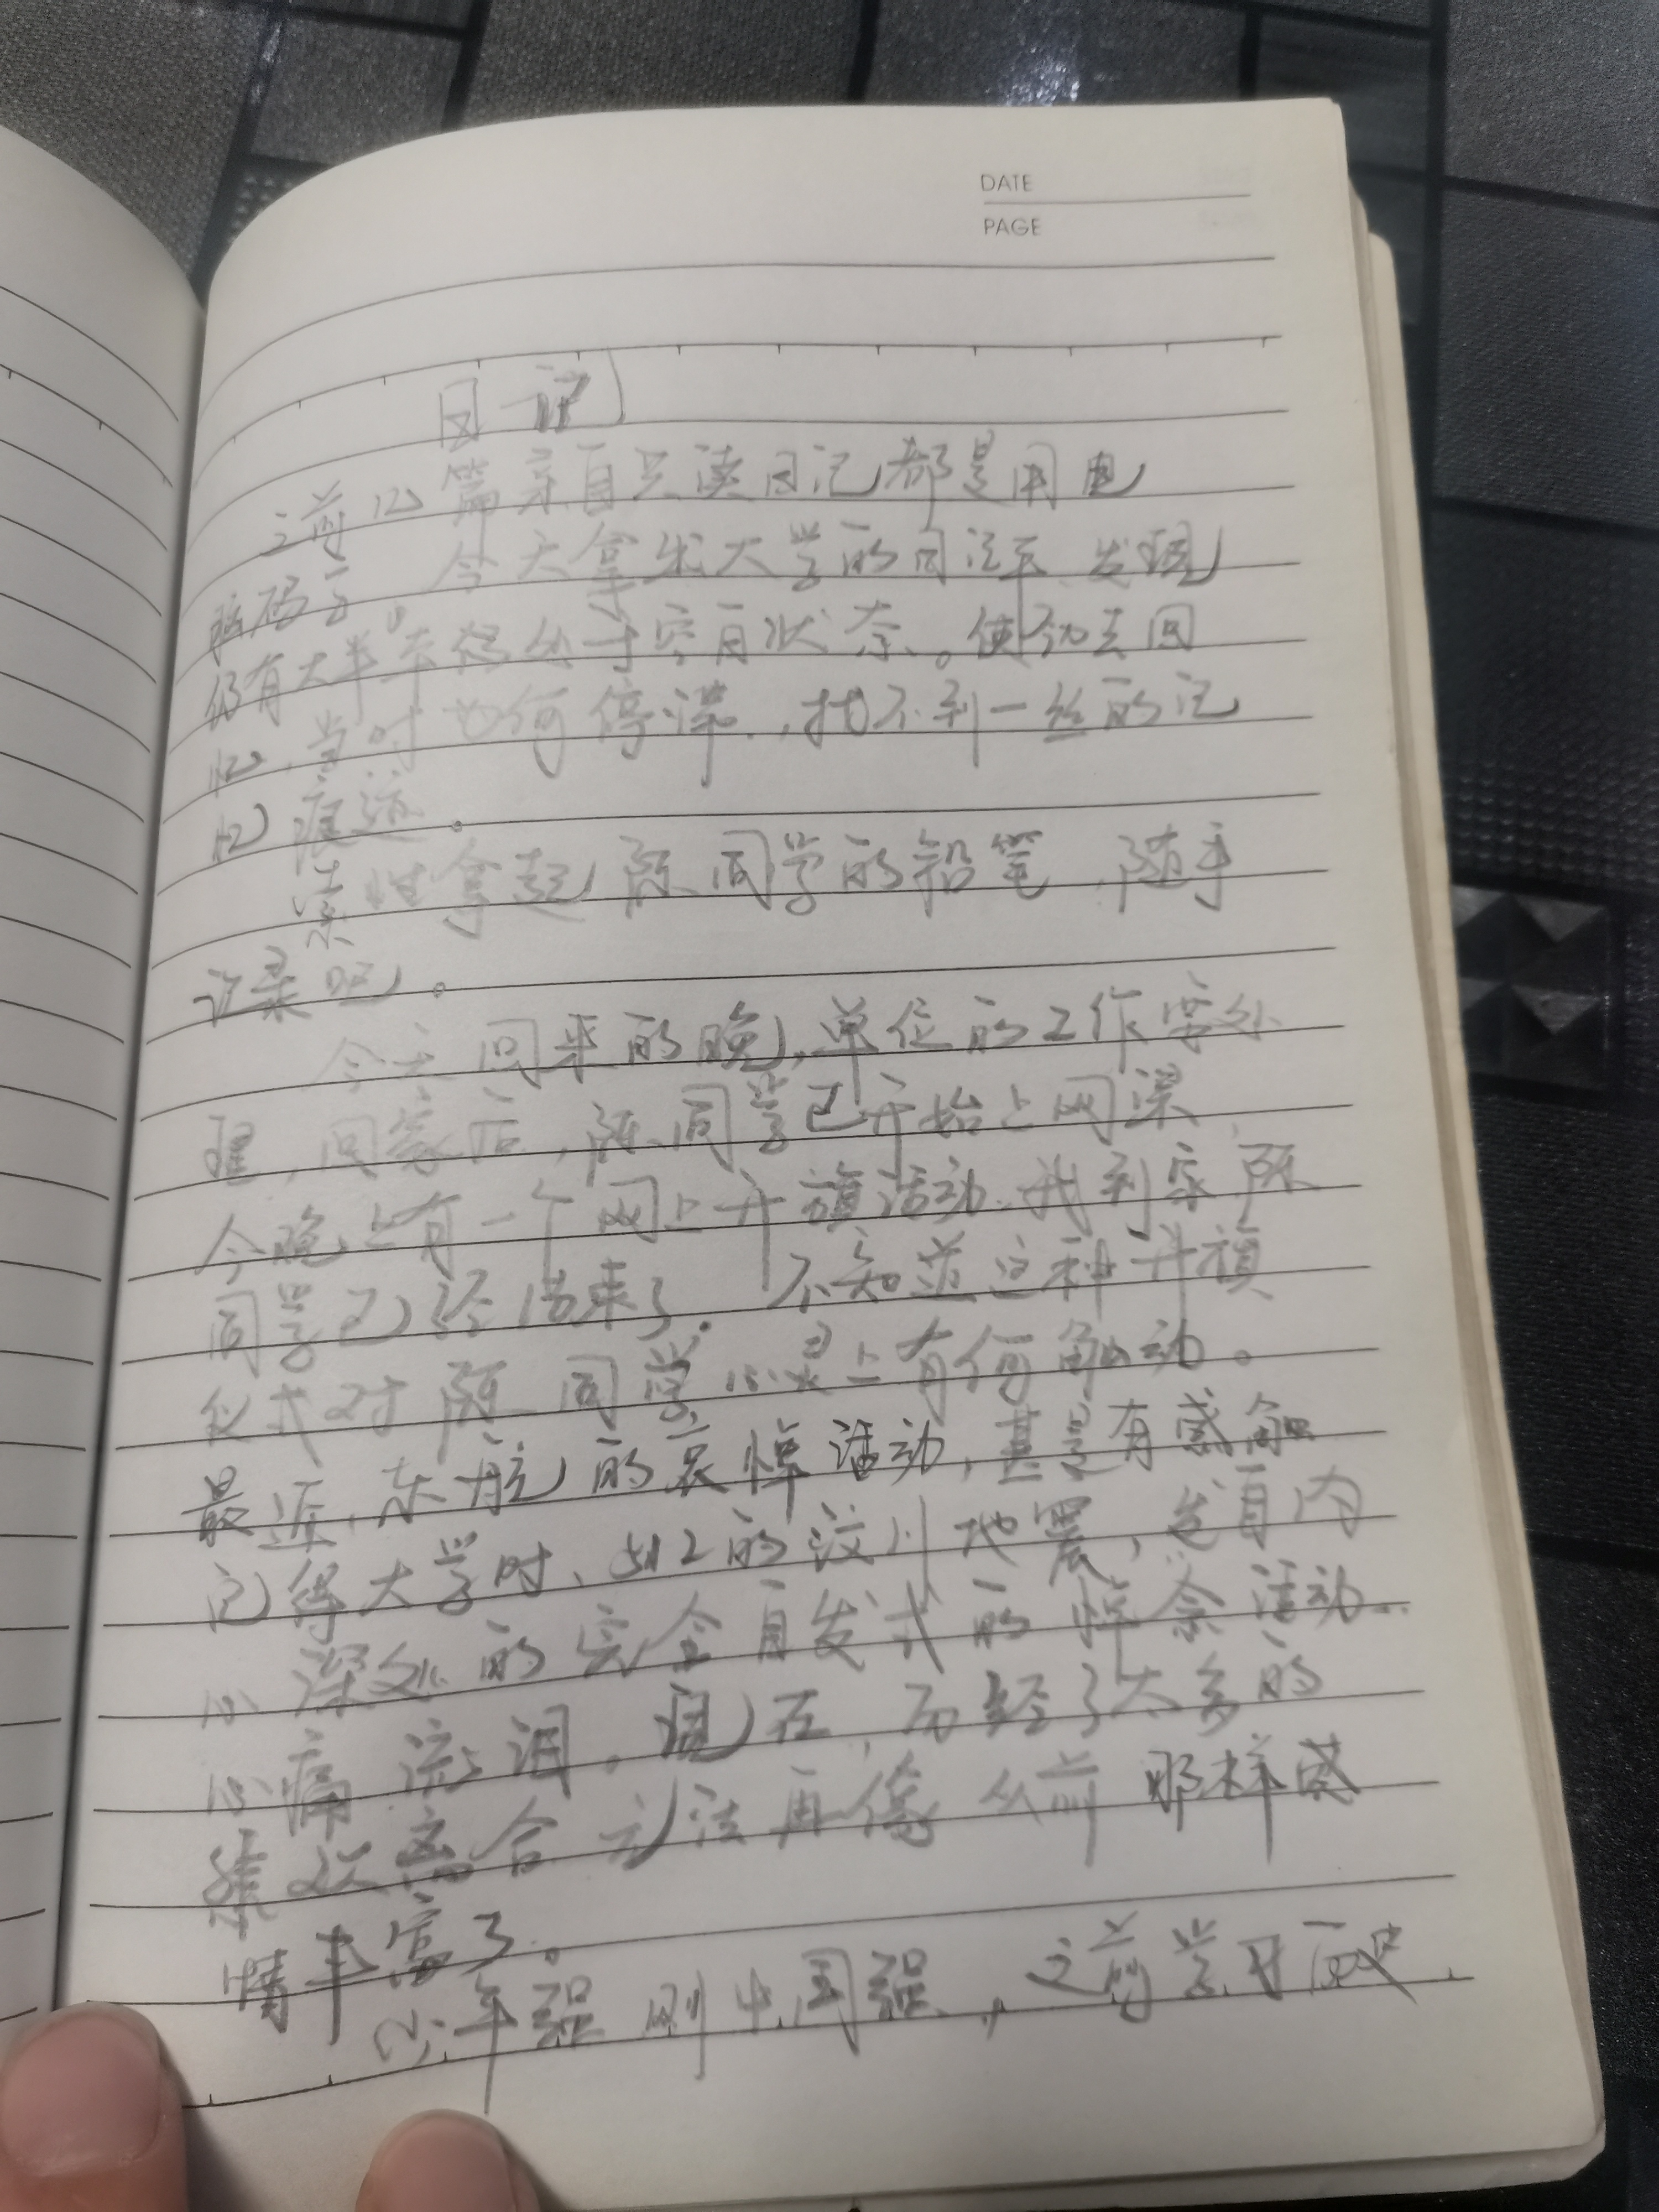 DATE
PAGE
日记
之前几篇亲自只读日记都是用电
脑码字。今天拿出大学的日记本,发现
仍有大半本仍处于空白状态。使劲去回
忆,当时如何停滞,找不到一丝的记
忆痕迹。
索性拿起陈同学的铅笔,随手
记录吧。
今天回来的晚,单位的工作要处
理,回家后,陈同学已开始上网课,
今晚上有一个网上升旗活动,我到家,陈
同学已经结束了。不知道这种升旗
仪式对陈同学心灵上有何触动。
最近,东航的哀悼活动,甚是有感触
记得大学时,512的汶川地震,发自内
心深处的完全自发式的悼念活动..
心痛流泪。现在,历经了太多的
悲欢离合无法再像从前那样感
情丰富了。
少年强则中国强,之前学习历史